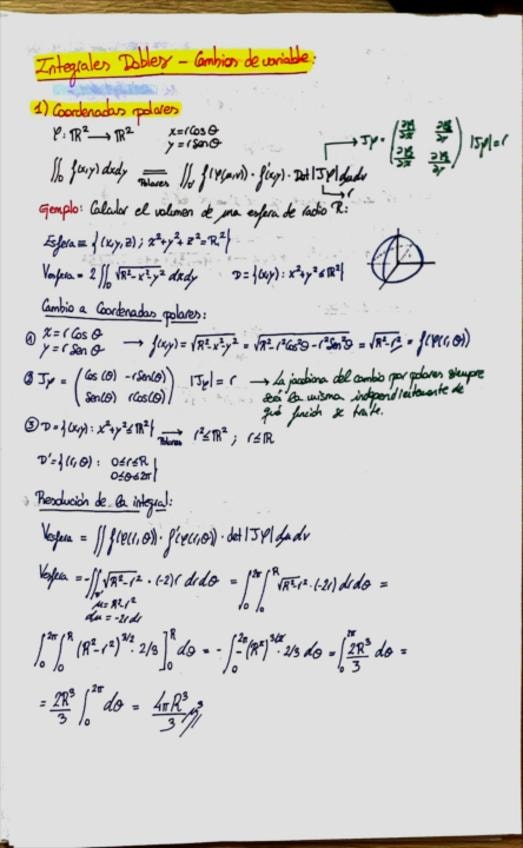 Integrales Dobles - Cambios de variable:
1) Coordenadas polares
φ: ℝ² → ℝ² x=rcosθ
y=rsenθ
→ Jφ = (∂x/∂x ∂x/∂r ∂y/∂x ∂y/∂r) |Jφ|=r
∬_D f(x,y)dxdy = Polares ∬_D f(φ(u,v))·f'(x,y)·Det|Jφ|dudv
→ r
Ejemplo: Calcular el volumen de una esfera de radio R:
Esfera = {(x,y,z); x²+y²+z²=R²}
Vesfera = 2∬_D √R²-x²-y² dxdy D={(x,y): x²+y²≤R²}
Cambio a Coordenadas polares:
① x=rCosθ
y=rSenθ → f(x,y)=√R²-x²-y² = √R²-r²Cos²θ-r²Sen²θ = √R²-r² = f(φ(r,θ))
② Jφ = (Cos(θ) -rSen(θ) Sen(θ) rCos(θ)) |Jφ|=r → La jacobiana del cambio por polares siempre
será la misma independientemente de
qué función se trate.
③ D={(x,y): x²+y²≤R²} → Polares r²≤R²; r≤R
D'={(r,θ): 0≤r≤R
0≤θ≤2π}
Resolución de la integral:
Vesfera = ∬ f(φ(r,θ))·f'(φ(r,θ))·det|Jφ|dudv
Vesfera = -∬_D' √R²-r² ·(-2)r drdθ = ∫₀^2π ∫₀^R √R²-r² ·(-2r) drdθ =
u=R²-r²
du=-2rdr
∫₀^2π ∫₀^R (R²-r²)^3/2 · 2/3 ]₀^R dθ = -∫₀^2π -(R²)^3/2 · 2/3 dθ = ∫₀^2π 2R³/3 dθ =
= 2R³/3 ∫₀^2π dθ = 4πR³/3 u³